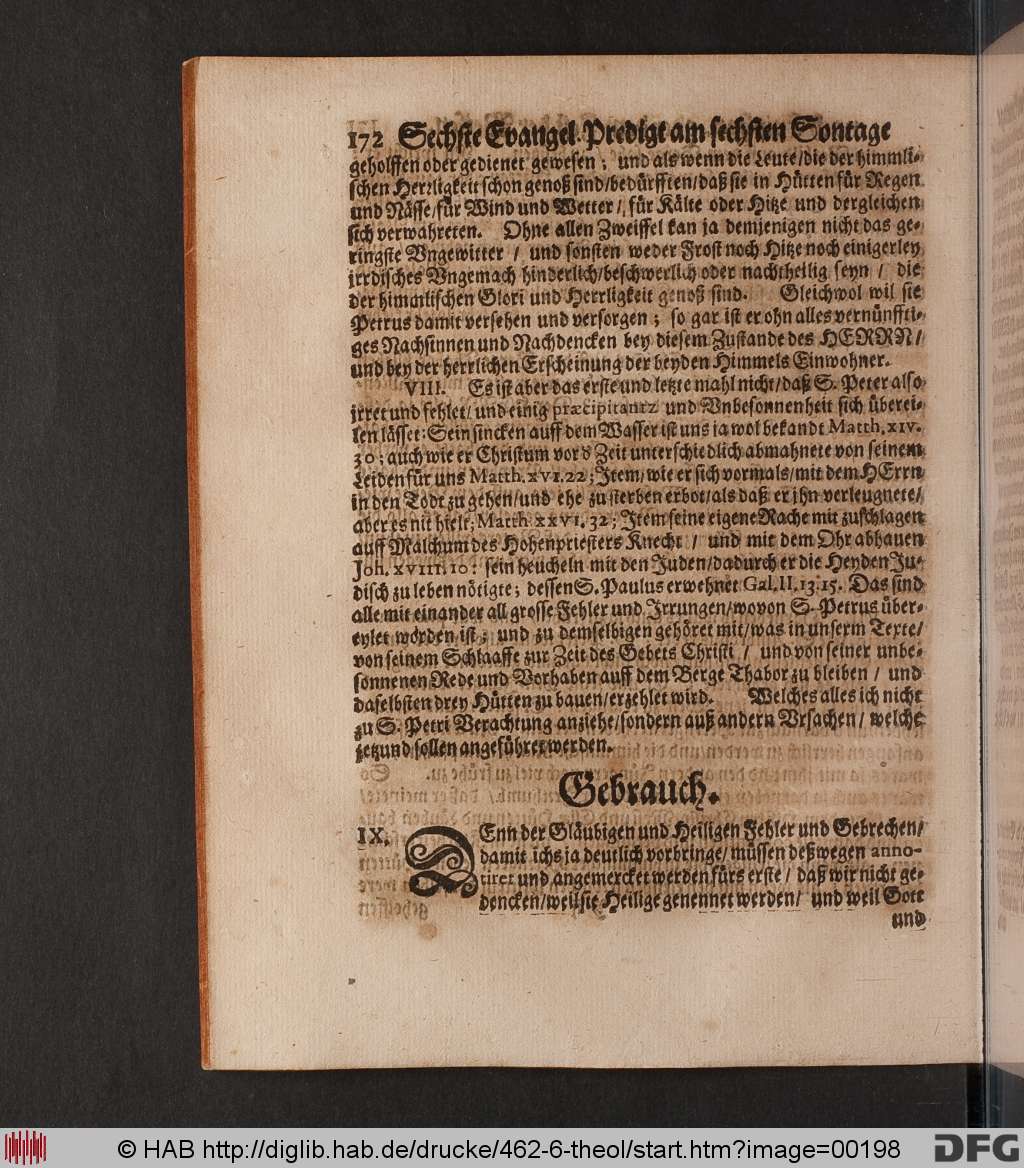 172 Sechste Evangel. Predigt am sechsten Sontage
geholffen oder gedienet gewesen; und als wenn die Leute/die der himmli-
schen Herrligkeit schon genoß sind/bedürfften/daß sie in Hütten für Regen
und Nässe/für Wind und Wetter/ für Kälte oder Hitze und dergleichen
sich verwahreten. Ohne allen Zweiffel kan ja demjenigen nicht das ge-
ringste Vngewitter / und sonsten weder Frost noch Hitze noch einigerley
irrdisches Vngemach hinderlich/beschwerlich oder nachtheilig seyn / die
der himmlischen Glori und Herrligkeit genoß sind. Gleichwol wil sie
Petrus damit versehen und versorgen; so gar ist er ohn alles vernünffti-
ges Nachsinnen und Nachdencken bey diesem Zustande des HERRN/
und bey der herrlichen Erscheinung der beyden Himmels Einwohner.
VIII. Es ist aber das erste und letzte mahl nicht/daß S. Peter also
irret und fehlet/ und einig præcipitantz und Vnbesonnenheit sich überei-
len lässet: Sein sincken auff dem Wasser ist uns ja wol bekandt Matth. XIV.
30; auch wie er Christum vor d Zeit unterschiedlich abmahnete von seinem
Leiden für uns Matth. XVI. 22; Item/wie er sich vormals/mit dem HErrn
in den Todt zu gehen/und ehe zu sterben erbot/als daß er jhn verleugnete/
aber es nit hielt; Matth. XXVI. 32; Item seine eigene Rache mit zuschlagen
auff Malchum des Hohenpriesters Knecht / und mit dem Ohr abhauen
Joh. XVIII. 10: sein heucheln mit den Juden/dadurch er die Heyden Jü-
disch zu leben nötigte; dessen S. Paulus erwehnet Gal. II. 13. 15. Das sind
alle mit einander all grosse Fehler und Irrungen/wovon S. Petrus über-
eylet worden ist; und zu demselbigen gehöret mit/was in unserm Texte/
von seinem Schlaaffe zur Zeit des Gebets Christi / und von seiner unbe-
sonnenen Rede und Vorhaben auff dem Berge Thabor zu bleiben / und
daselbsten drey Hütten zu bauen/erzehlet wird. Welches alles ich nicht
zu S. Petri Verachtung anziehe/sondern auß andern Vrsachen/ welche
jetzund sollen angeführet werden.
Gebrauch.
IX. DEnn der Gläubigen und Heiligen Fehler und Gebrechen/
damit ichs ja deutlich vorbringe/müssen deßwegen anno-
tiret und angemercket werden fürs erste / daß wir nicht ge-
dencken/weil sie Heilige genennet werden/ und weil Gott
und
© HAB http://diglib.hab.de/drucke/462-6-theol/start.htm?image=00198
DFG